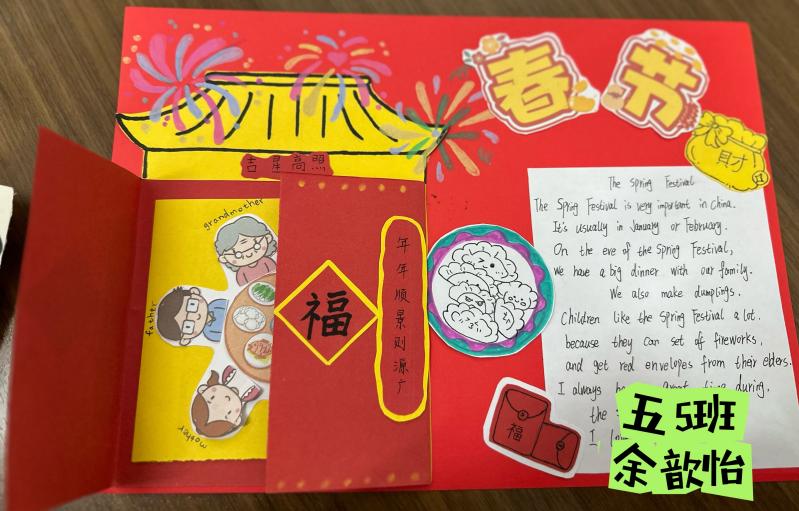 春节
吉星高照
财
grandmother
father
mother
福
年年顺景则源广
福
The Spring Festival
The Spring Festival is very important in China.
It's usually in January or February.
On the eve of the Spring Festival,
we have a big dinner with our family.
We also make dumplings.
Children like the Spring Festival a lot.
because they can set of fireworks,
and get red envelopes from their elders.
I always great time during,
the
I
五5班
余歆怡